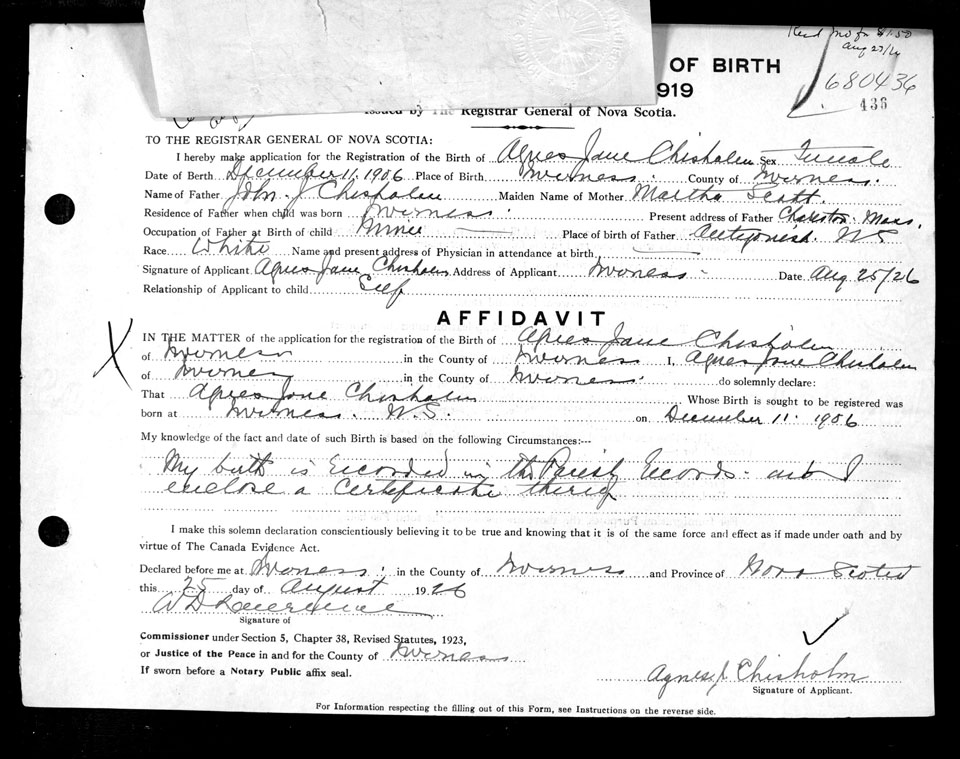 Recd mo for $1.50
Aug 27/26
OF BIRTH
680436
1919
436
Issued by The Registrar General of Nova Scotia.
TO THE REGISTRAR GENERAL OF NOVA SCOTIA:
I hereby make application for the Registration of the Birth of Agnes Jane Chisholm Sex Female
Date of Birth December 11, 1906 Place of Birth Inverness. County of Inverness.
Name of Father John J Chisholm Maiden Name of Mother Martha Scott.
Residence of Father when child was born Inverness. Present address of Father Mass.
Occupation of Father at Birth of child Miner Place of birth of Father Antigonish. N S
Race White Name and present address of Physician in attendance at birth
Signature of Applicant Agnes Jane Chisholm Address of Applicant Inverness Date Aug 25/26
Relationship of Applicant to child Self
AFFIDAVIT
IN THE MATTER of the application for the registration of the Birth of Agnes Jane Chisholm
of Inverness in the County of Inverness I, Agnes Jane Chisholm
of Inverness in the County of Inverness. do solemnly declare:
That Agnes Jane Chisholm Whose Birth is sought to be registered was
born at Inverness. N.S. on December 11. 1906
My knowledge of the fact and date of such Birth is based on the following Circumstances:--
My birth is recorded in the Parish Records and I
enclose a Certificate thereof
I make this solemn declaration conscientiously believing it to be true and knowing that it is of the same force and effect as if made under oath and by
virtue of The Canada Evidence Act.
Declared before me at Inverness. in the County of Inverness and Province of Nova Scotia
this 25 day of August 1926
W D Lawrence
Signature of
Commissioner under Section 5, Chapter 38, Revised Statutes, 1923,
or Justice of the Peace in and for the County of Inverness
If sworn before a Notary Public affix seal.
Agnes J Chisholm
Signature of Applicant.
For Information respecting the filling out of this Form, see Instructions on the reverse side.